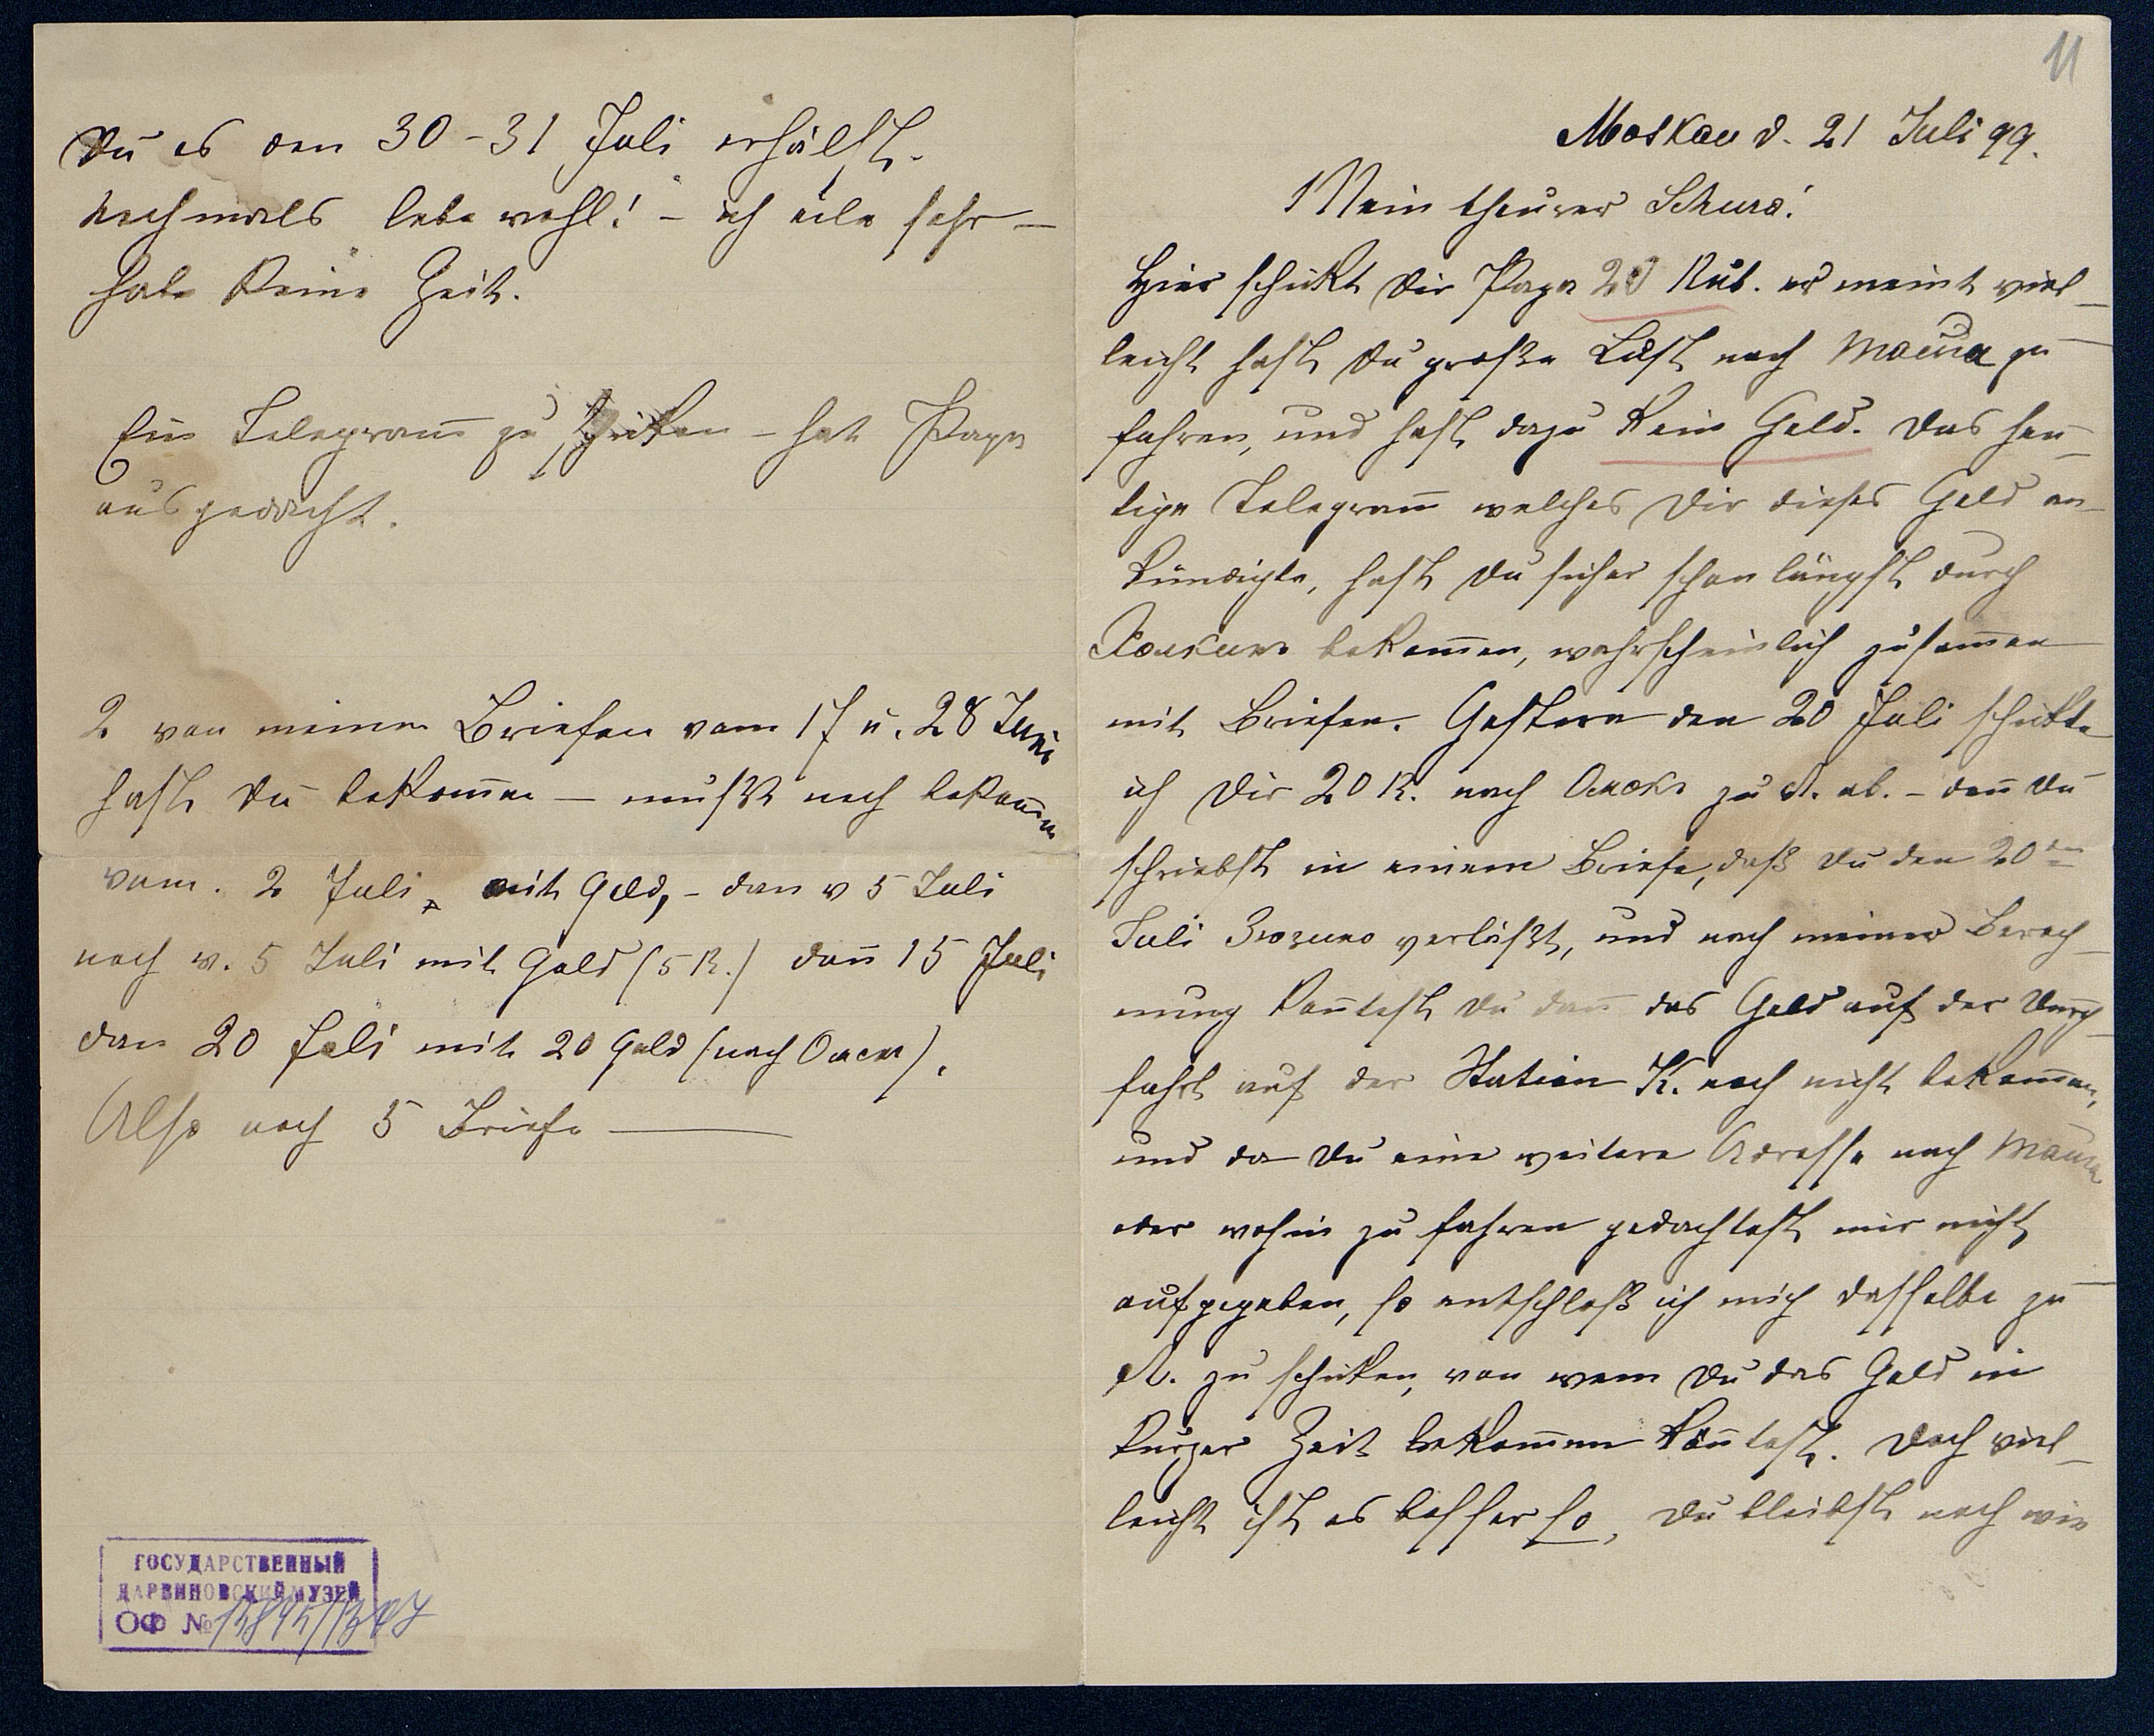 du es den 30-31 Juli erhälst.
Nochmals lebe wohl! – ich eile sehr –
habe keine Zeit.
Ein Telegram̄ zu schiken – hat Papa
ausgedacht.
2 von meinen Briefen vom 17 u. 28 Juni
hast du bekom̄en – mußt noch bekom̄en
vom. 2 Juli, mit Geld, – dan v 5 Juli
noch v. 5 Juli mit Geld (5 R.) dan̄ 15 Juli
dan 20 Juli mit 20 Geld (nach Омск).
Also noch 5 Briefe —
ГОСУДАРСТВЕННЫЙ
ДАРВИНОВСКИЙ МУЗЕЙ
ОФ №
11
Moskau d. 21 Juli 99.
Mein theurer Schura!
Hier schikt dir Papa 20 Rub. er meint viel-
leicht hast du große Lust nach zu
fahren, und hast dazu kein Geld. Das heu-
tige Telegram̄ welches dir dieses Geld an-
kündigte, hast du sicher schon längst durch
bekom̄en, wahrscheinlich zusam̄en
mit Briefen. Gestern den 20 Juli schikte
ich dir 20 R. nach Омскъ zu A. ab. – den̄ du
schriebst in einem Briefe, daß du den 20ten
Juli verläßt, und nach meiner Berech-
nung kon̄test du dan̄ das Geld auf der Durch-
fahrt auf der Station K. noch nicht bekom̄en,
und da du eine weitere Adresse nach
oder wohin zu fahren gedachtest mir nicht
aufgegeben, so entschloß ich mich dasselbe zu
A. zu schiken, von wem du das Geld in
kurzer Zeit bekom̄en kön̄test. Doch viel-
leicht ist es besser so, du bleibst noch wie